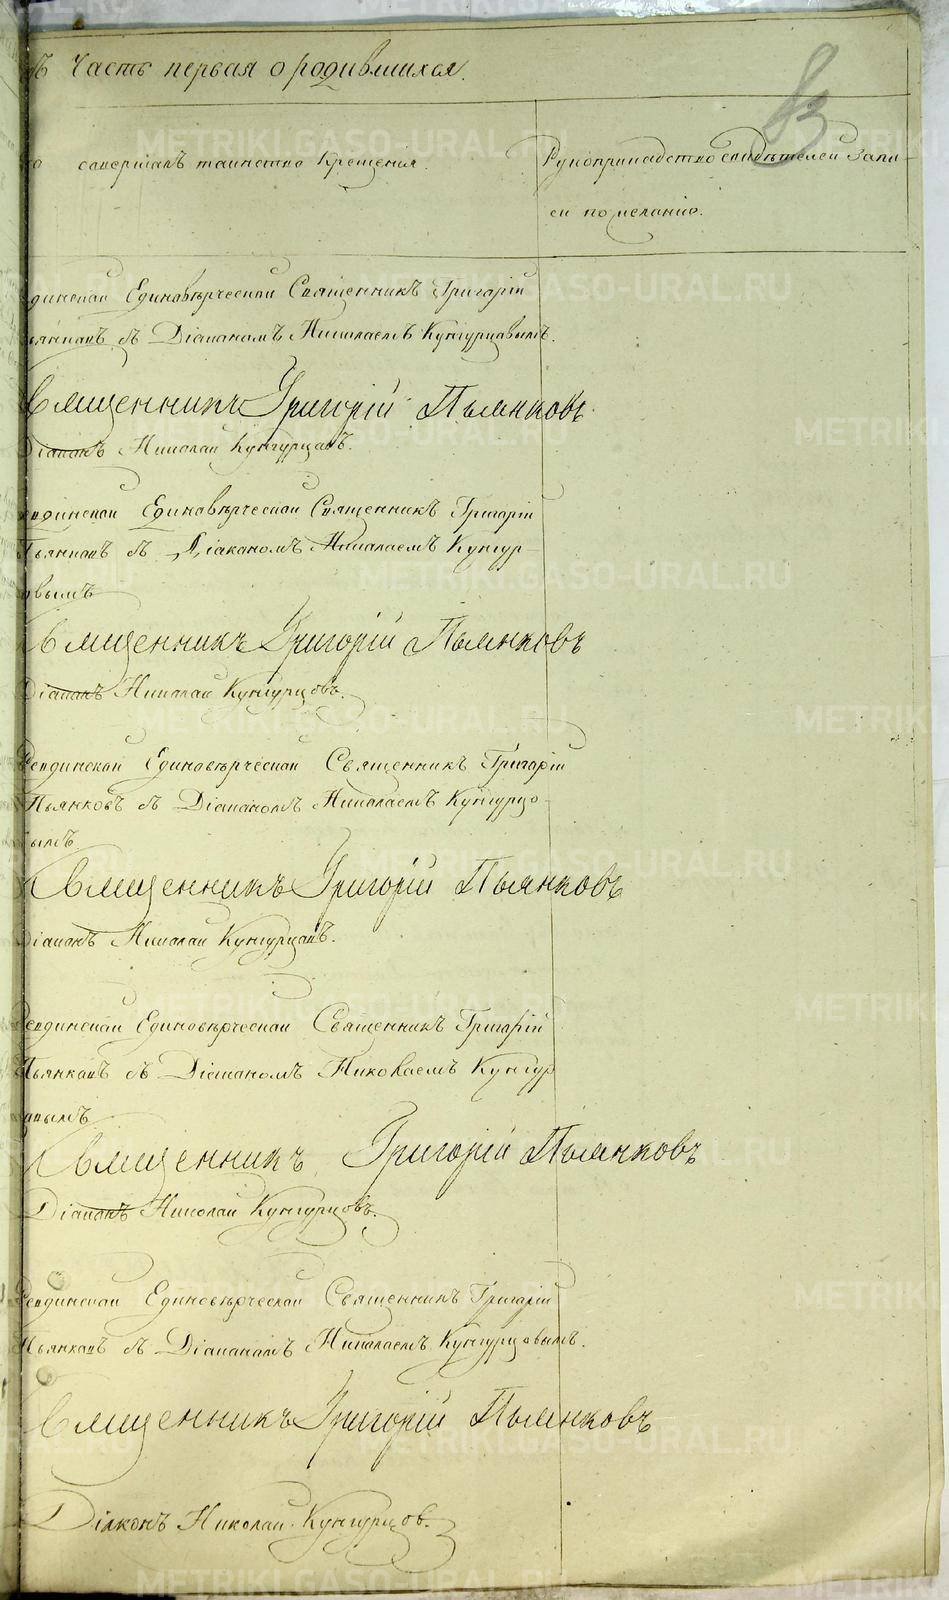 ъ Часть первая о родившихся.
83
совершалъ таинство крещенія.
Рукоприкладство свидѣтелей запи-
си по желанію.
Единовѣрческой Священникъ Григорій
съ Діакономъ Николаемъ Кунгурцовымъ.
Священникъ Григорій Пьянковъ
Діаконъ Николай Кунгурцовъ.
Единовѣрческой Священникъ Григорій
Пьянковъ съ Діакономъ Николаемъ Кунгур-
овымъ
Священникъ Григорій Пьянковъ
Діаконъ Николай Кунгурцовъ.
Единовѣрческой Священникъ Григорій
Пьянковъ съ Діакономъ Николаемъ Кунгурцо-
вымъ.
Священникъ Григорій Пьянковъ
Діаконъ Николай Кунгурцовъ.
Единовѣрческой Священникъ Григорій
Пьянковъ съ Діакономъ Николаемъ Кунгур
овымъ
Священникъ Григорій Пьянковъ
Діаконъ Николай Кунгурцовъ.
Единовѣрческой Священникъ Григорій
Пьянковъ съ Діакономъ Николаемъ Кунгурцовымъ.
Священникъ Григорій Пьянковъ
Діаконъ Николай Кунгурцов.
METRIKI.GASO-URAL.RU